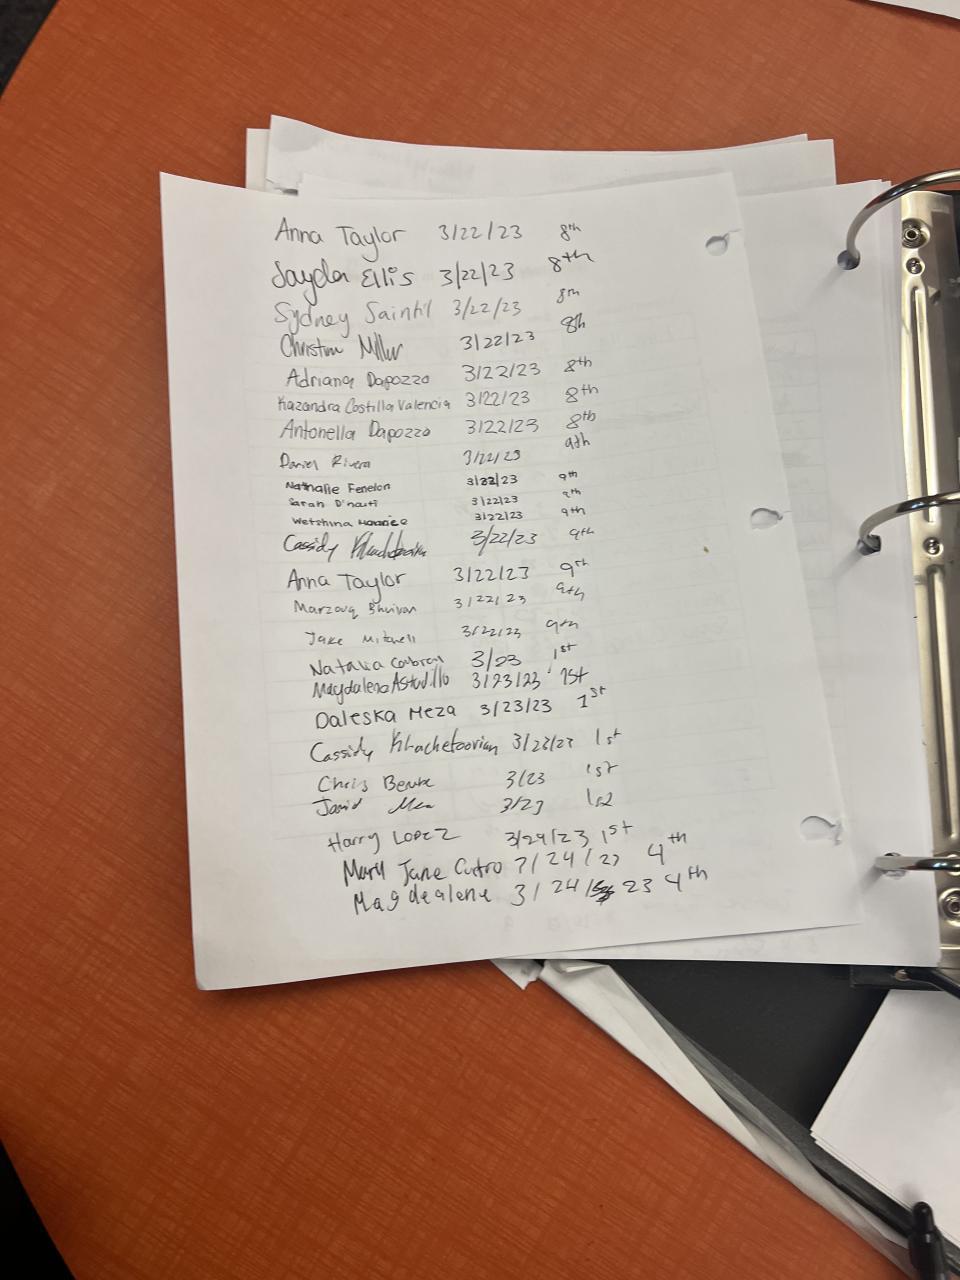 Anna Taylor 3/22/23 8th
Jayda Ellis 3/22/23 8th
Sydney Saintil 3/22/23 8th
Christine Miller 3/22/23 8th
Adriana Dapozzo 3/22/23 8th
Kazandra Costilla Valencia 3/22/23 8th
Antonella Dapozzo 3/22/23 8th
Daniel Rivera 3/22/23 9th
Nathalie Fenelon 3/22/23 9th
Sarah 3/22/23 9th
3/22/23 9th
Cassidy 3/22/23 9th
Anna Taylor 3/22/23 9th
3/22/23 9th
Jake Mitchell 3/22/23 9th
Natalia Cabral 3/23 1st
Magdalena Astudillo 3/23/23 1st
Daleska Meza 3/23/23 1st
Cassidy Khachetoorian 3/23/23 1st
Chris 3/23 1st
3/23 1st
Harry Lopez 3/24/23 1st
Mary Jane Castro 3/24/23 4th
Magdealene 3/24/23 4th